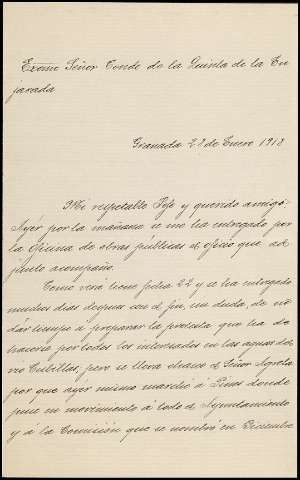 Excmo Señor Conde de la Quinta de la En
jarada
Granada 28 de Enero 1918
Mi respetable Jefe y querido amigo:
Ayer por la mañana se me ha entregado por
la Oficina de obras publicas el oficio que ad
junto acompaño.
Como verá tiene fecha 22 y se ha entregado
muchos dias despues con el fin, sin duda, de no
dar tiempo á preparar la protesta que ha de
hacerse por todos los interesados en las aguas del
rio Cubillas, pero se lleva chasco el Señor Agrela
por que ayer mismo marchó á Pinos donde
puse en movimiento á todo el Ayuntamiento
y á la Comisión que se nombró en Diciembre